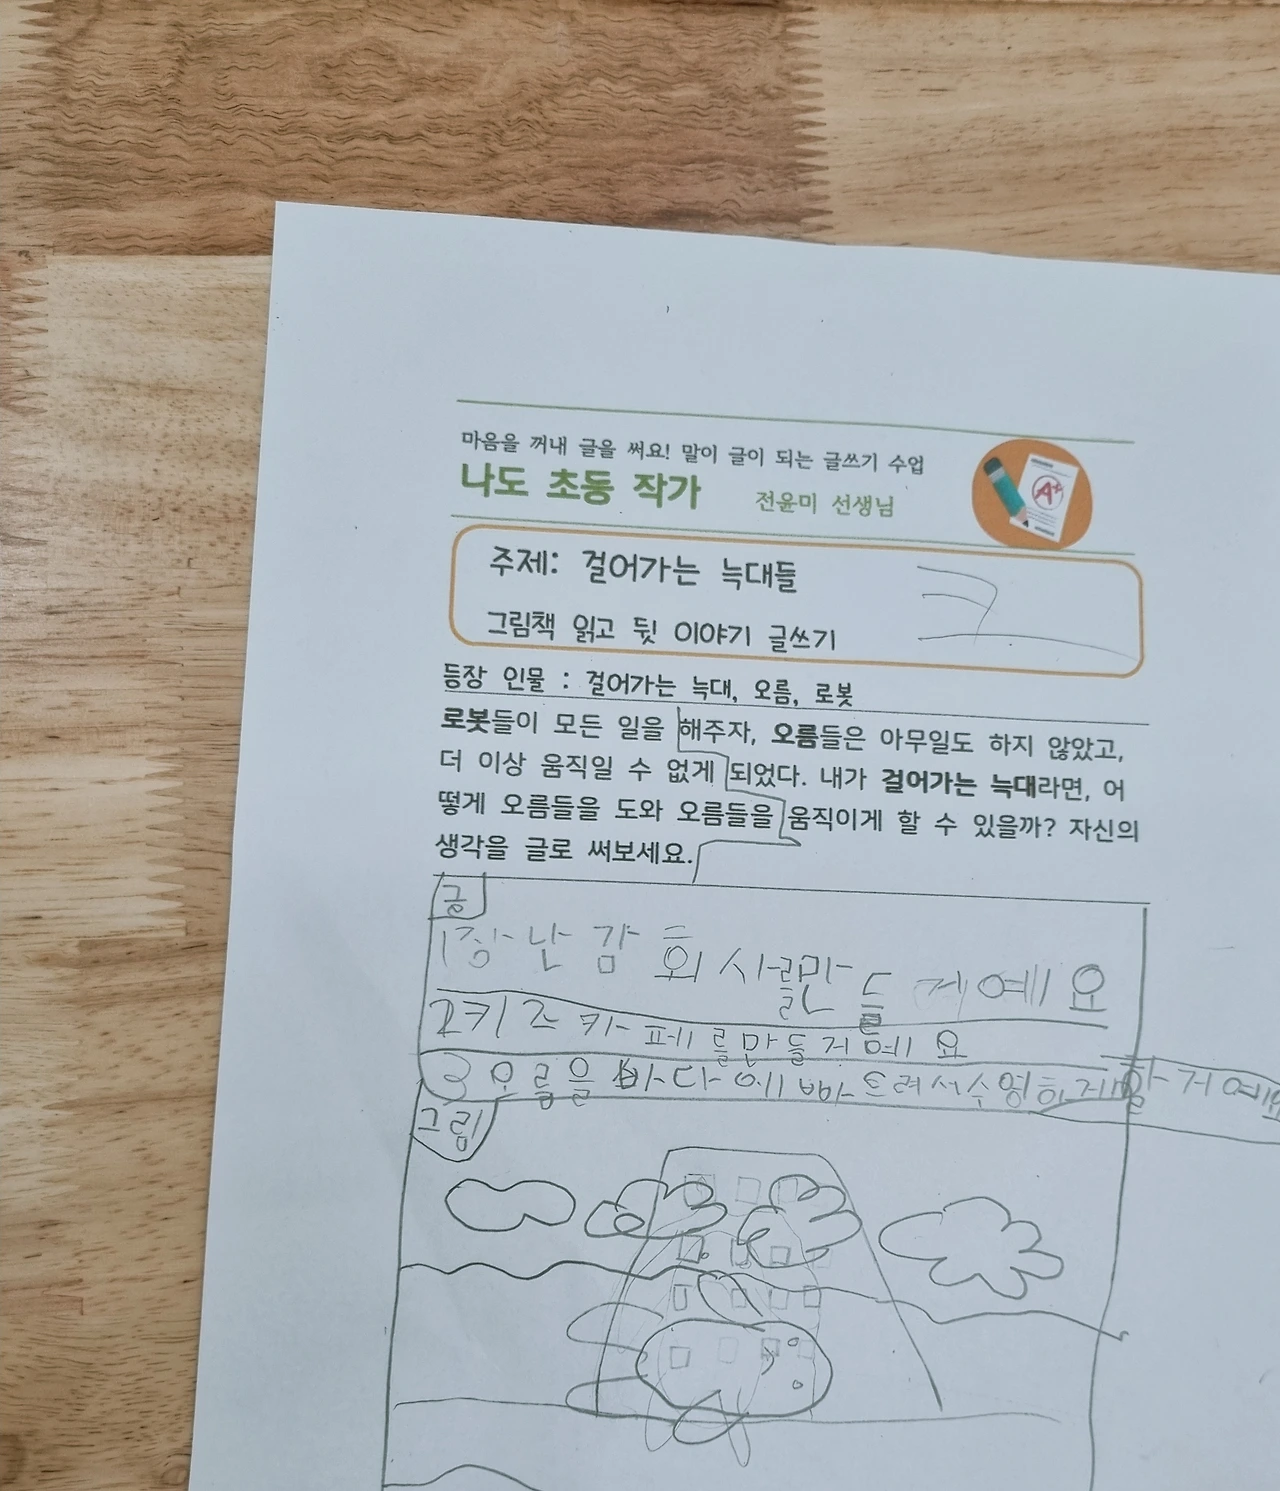 마음을 꺼내 글을 써요! 말이 글이 되는 글쓰기 수업
나도 초등 작가 전윤미 선생님
A+
주제: 걸어가는 늑대들
그림책 읽고 뒷 이야기 글쓰기
등장 인물 : 걸어가는 늑대, 오름, 로봇
로봇들이 모든 일을 해주자, 오름들은 아무일도 하지 않았고,
더 이상 움직일 수 없게 되었다. 내가 걸어가는 늑대라면, 어
떻게 오름들을 도와 오름들을 움직이게 할 수 있을까? 자신의
생각을 글로 써보세요.
글
1장난감 회사를만들거예요
2키즈카페를만들거예요
3오름을바다에빠뜨려서수영하게할거예요
그림